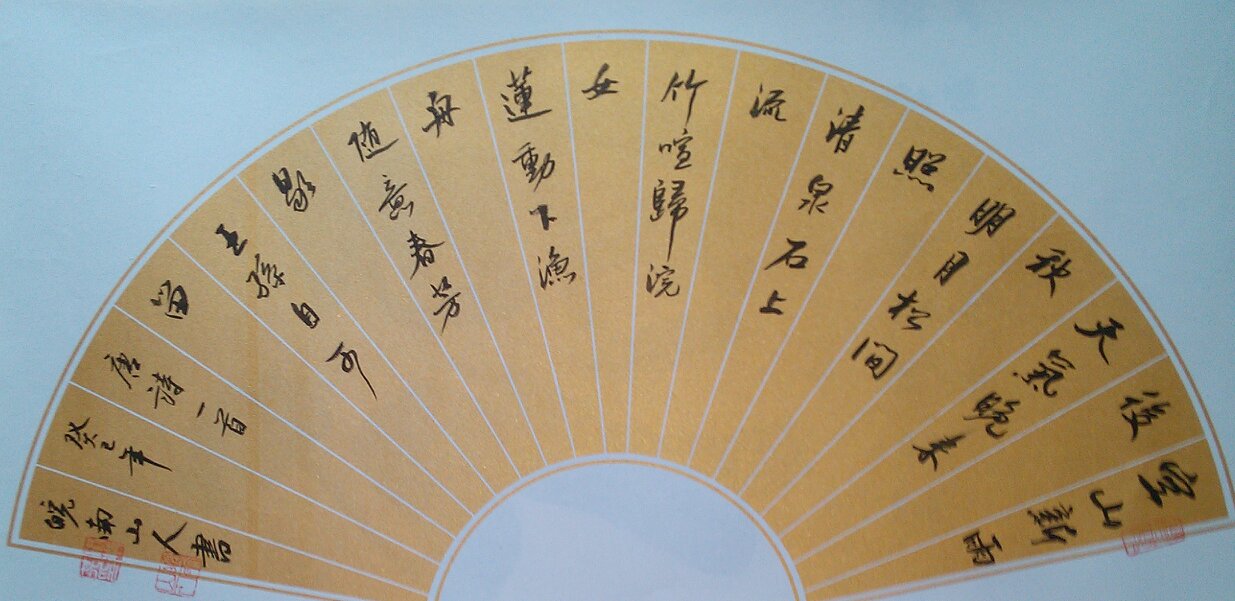 空山新雨
後
天氣晚来
秋
明月松间
照
清泉石上
流
竹喧歸浣
女
蓮動下漁
舟
随意春芳
歇
王孫自可
留
唐诗一首
癸巳年
皖南山人書